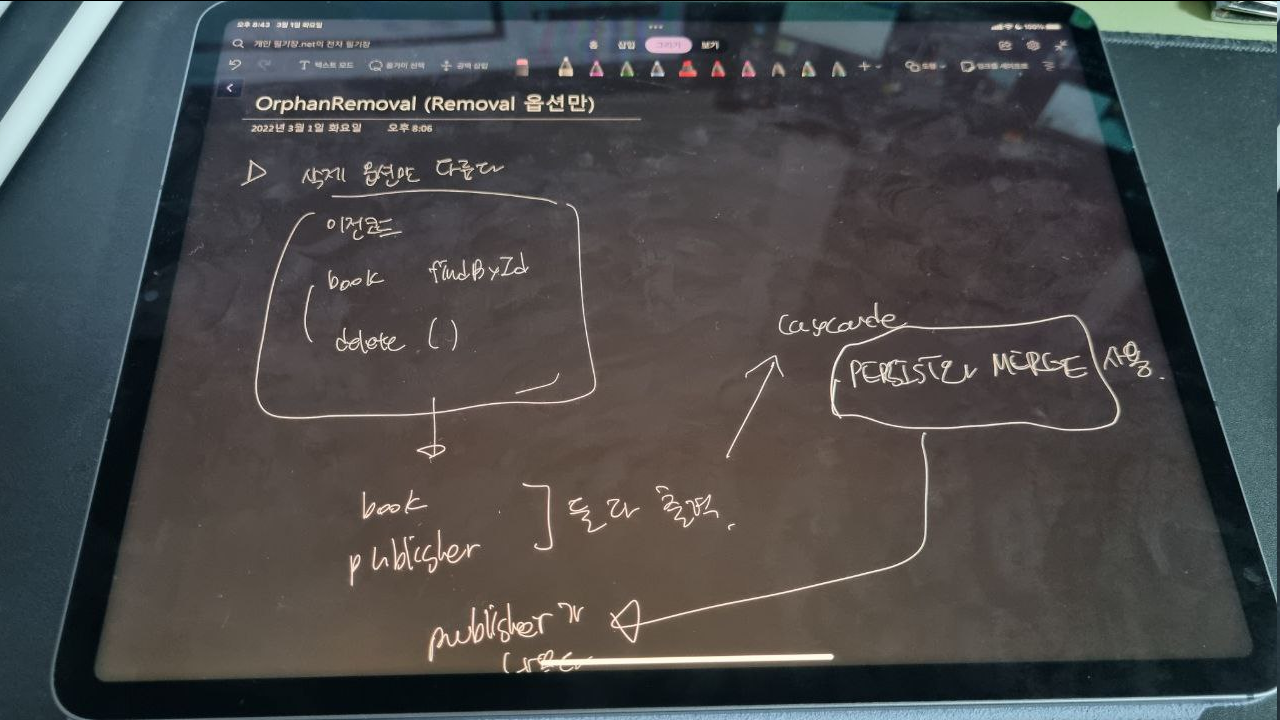 오후 8:43 3월 1일 화요일
100%
개인 필기장.net의 전자 필기장
홈 삽입 그리기 보기
텍스트 모드 올가미 선택 공백 삽입 도형
OrphanRemoval (Removal 옵션만)
2022년 3월 1일 화요일 오후 8:06
삭제 옵션만 다룬다
이전코드
book findById
delete ()
cascade
PERSIST와 MERGE 사용.
book
publisher
둘 다 출력.
publisher가